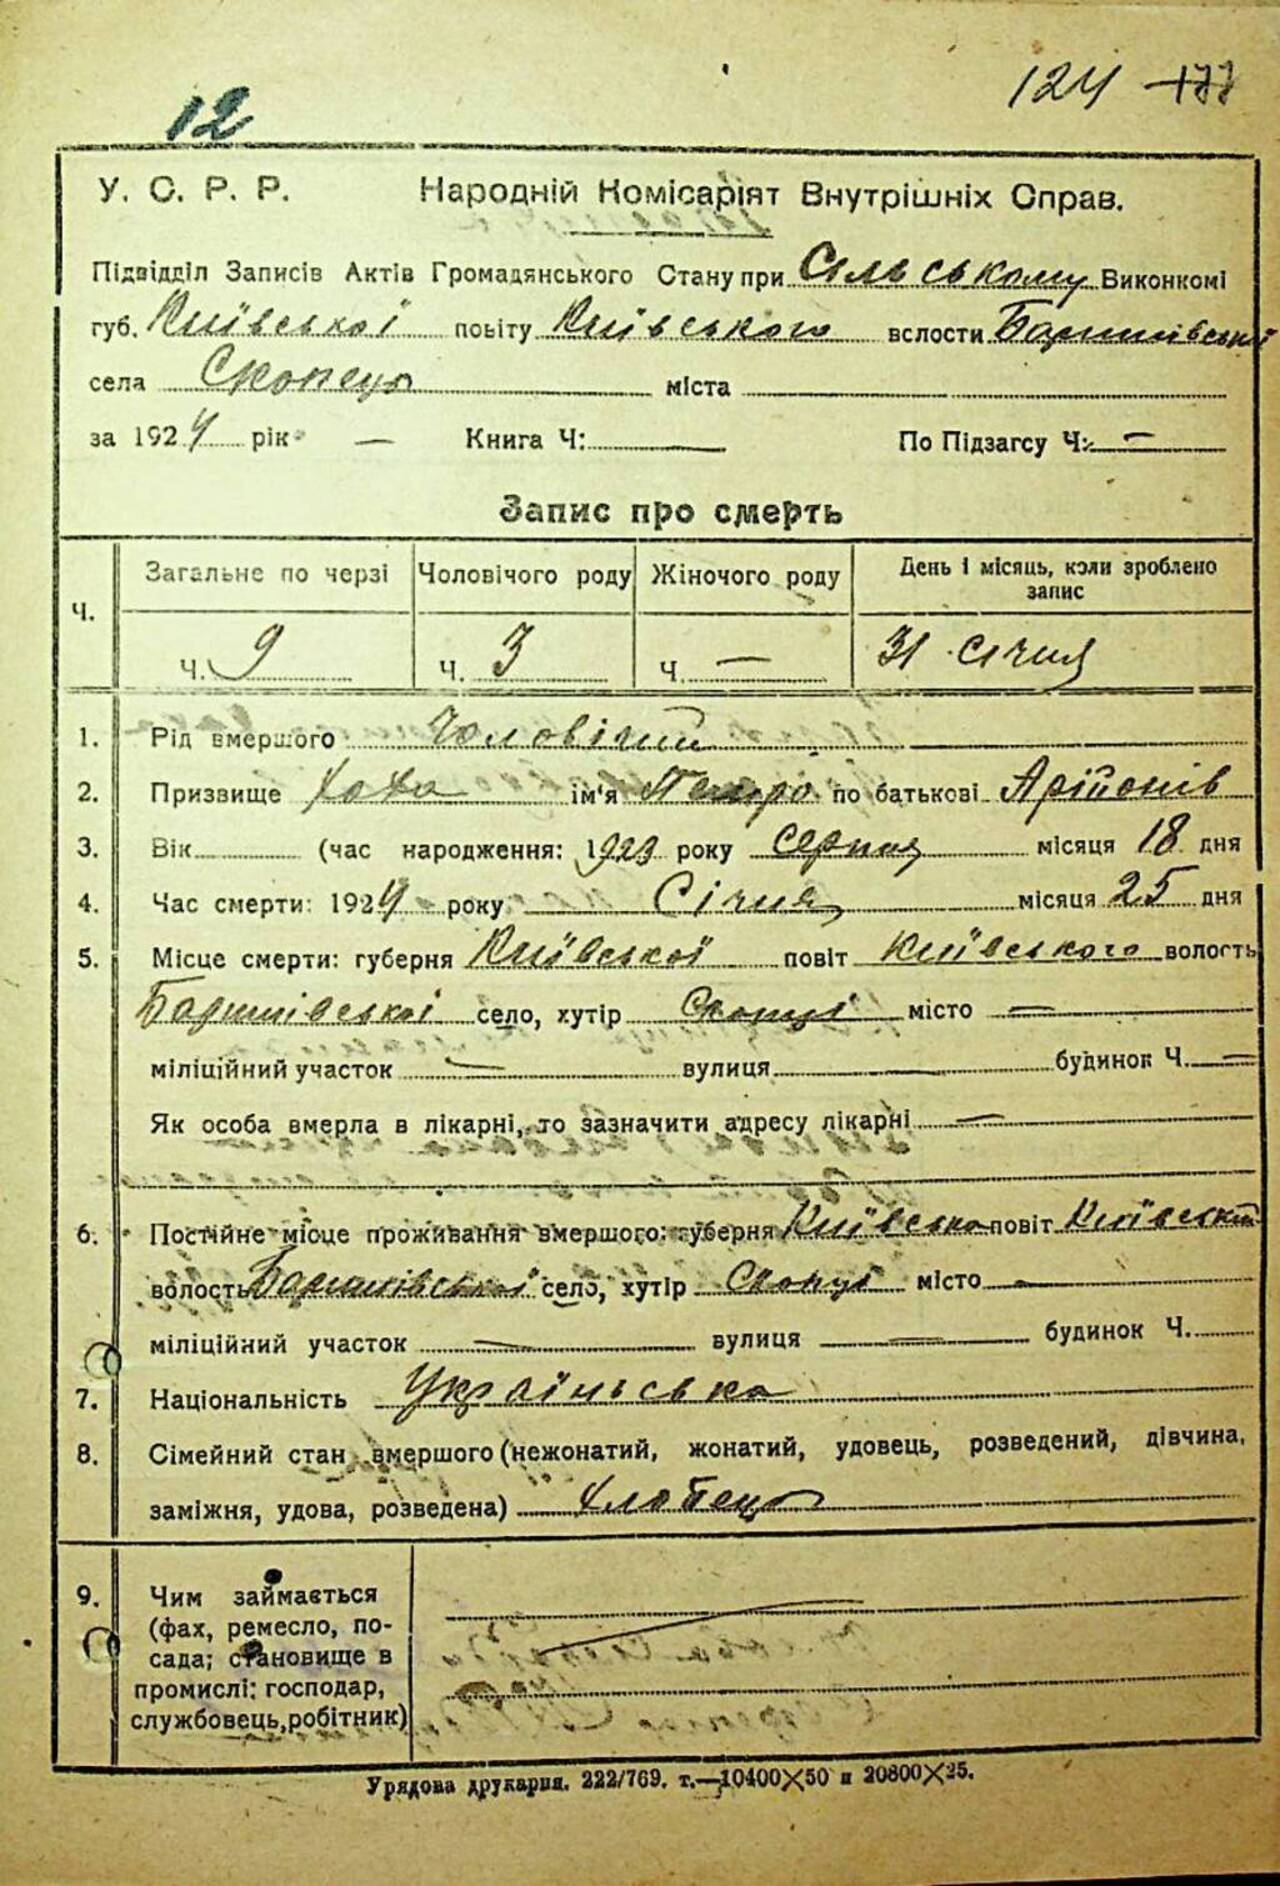 12
124 177
У. С. Р. Р. Народній Комісаріят Внутрішніх Справ.
Підвідділ Записів Актів Громадянського Стану при Сільському Виконкомі
губ. Київської повіту Київського вслости Баришівської
села Скопець міста
за 1924 рік — Книга Ч: По Підзагсу Ч: —
Запис про смерть
Ч. Загальне по черзі Чоловічого роду Жіночого роду День і місяць, коли зроблено запис
Ч. 9 Ч. 3 Ч. — 31 січня
1. Рід вмершого Чоловічий
2. Призвище ім'я Петро по батькові
3. Вік (час народження: 1923 року серпня місяця 18 дня
4. Час смерти: 1924 року Січня місяця 25 дня
5. Місце смерти: губерня Київської повіт Київського волость
Баришівської село, хутір Скопці місто —
міліційний участок — вулиця будинок Ч. —
Як особа вмерла в лікарні, то зазначити адресу лікарні —
6. Постійне місце проживання вмершого: губерня Київська повіт Київський
волость Баришівської село, хутір Скопці місто —
міліційний участок — вулиця — будинок Ч.
7. Національність Українська
8. Сімейний стан вмершого (нежонатий, жонатий, удовець, розведений, дівчина,
заміжня, удова, розведена) хлопець
9. Чим займається
(фах, ремесло, по-
сада; становище в
промислі: господар,
службовець, робітник)
Урядова друкарня. 222/769. т.—10400×50 и 20800×25.